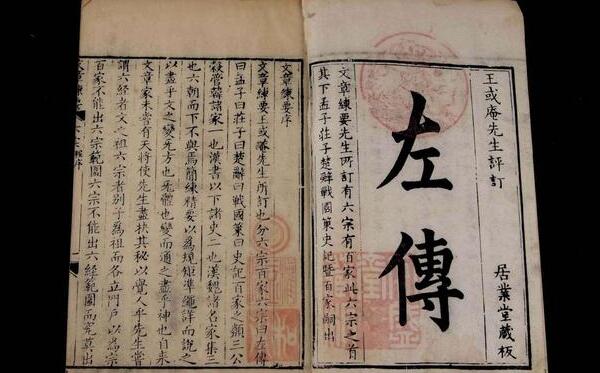 王或庵先生評訂
居業堂藏板
左傳
文章練要先生所訂有六宗有百家此六宗之首
其下孟子莊子楚辭戰國策史記暨百家嗣出
文章練要序
文章練要王或菴先生所訂也分六宗百家六宗曰左傳
曰孟子曰莊子曰楚辭曰戰國策曰史記百家之類三公
穀管韓諸家一也漢書以下諸史二也漢魏諸名家集三
也六朝而下不與焉簡練精要以為規矩準繩詳而說之
以盡乎文之變先方也死體也變而通之盡乎神也自来
文章家未嘗有天將使先生盡抉其秘以覺人乎先生嘗
謂六経者文之祖六宗者別子為祖而各立門戶以為宗
百家不能出六宗範圍六宗不能出六経範圍而究莫出